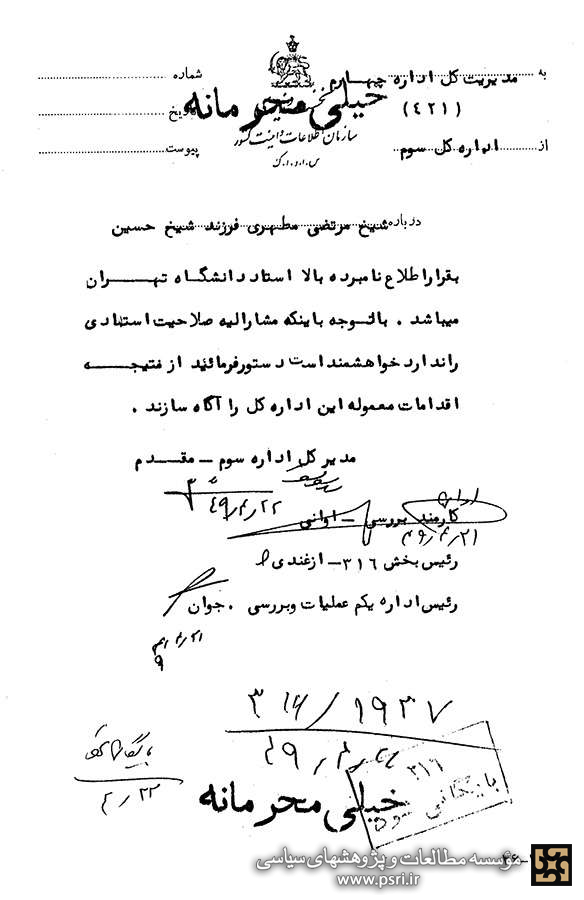 به مدیریت کل اداره چهارم شماره
خیلی محرمانه
(۴۲۱) تاریخ
سازمان اطلاعات و امنیت کشور
از اداره کل سوم پیوست
س.ا.و.ا.ک
درباره شیخ مرتضی مطهری فرزند شیخ حسین
بقرار اطلاع نامبرده بالا استاد دانشگاه تهران
میباشد . باتوجه باینکه مشارالیه صلاحیت استادی
را ندارد خواهشمند است دستور فرمائید از نتیجه
اقدامات معموله این اداره کل را آگاه سازند .
مدیر کل اداره سوم - مقدم
۴۹/۴/۲۲
کارمند بررسی - اوانی
۴۹/۴/۲۱
رئیس بخش ۳۱۶ - ازغندی
رئیس اداره یکم عملیات و بررسی . جوان
۳۱۶/۱۹۳۷
بایگانی شود
۴/۲۲
۳۱۶
بایگانی شود
خیلی محرمانه
موسسه مطالعات و پژوهشهای سیاسی
www.psri.ir